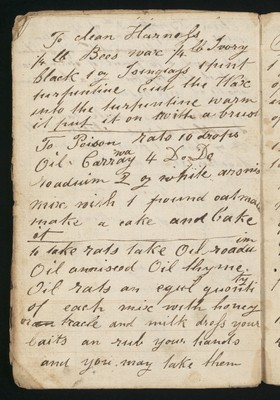 To clean Harness
¼ lb Bees wax ¼ lb Ivory
black 1 oz Isinglass spirit
turpentine Cut the Wax
into the turpentine warm
it put it on with a brust
To Poison rats 10 drops
Oil Carraway 4 Do Do
roaduim 2 oz white
mix with 1 pound oatmeal
make a cake and bake
it
to take rats take Oil roaduim
Oil anniseed Oil thyme
Oil rats an equel quantity
of each mix with honey
tracle and milk dress your
baits an rub your hands
and you may take them